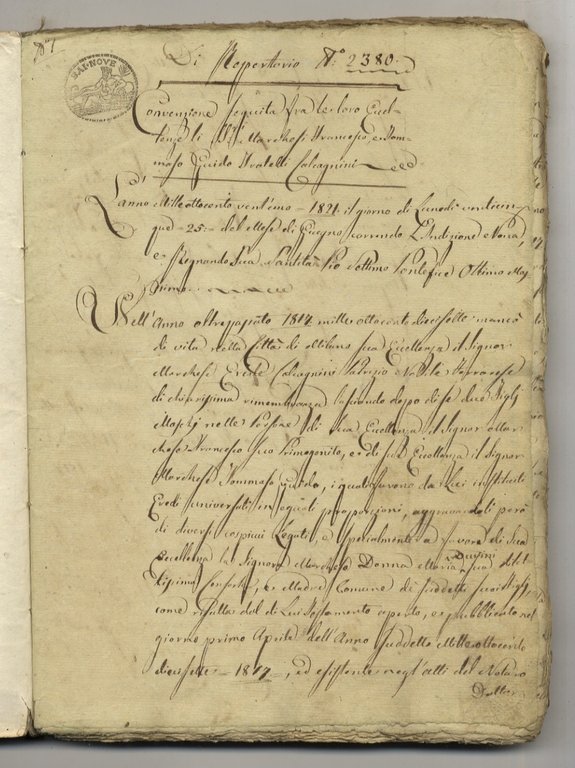 N° 1
BAI. NOVE
Di Repertorio N.° 2380.
Convenzione seguita fra le loro Eccel-
lenze li SS.ri Marchesi Francesco, e Tom-
maso Guido Fratelli Calcagnini
L'anno Mille ottocento vent'uno = 1821. il giorno di Lunedì venticin-
que = 25 = del Mese di Giugno, correndo l'Indizione Nona,
e Regnando Sua Santità Pio Settimo Pontefice Ottimo Mas-
simo.
Nell'Anno oltrepassato 1817. mille ottocento diecisette mancò
di vita nella Città di Milano sua Eccellenza il Signor
Marchese Ercole Calcagnini Patrizio Nobile Ferrarese
di chiarissima rimembranza lasciando doppo di sé due Figlj
Maschj nelle Persone di sua Eccellenza il Signor Mar-
chese Francesco suo Primogenito, e di sua Eccellenza il Signor
Marchese Tommaso Guido, i quali furono da Lui instituiti
Eredi universali in eguali proporzioni, aggravandoli però
di diversi cospicui Legati, e specialmente a favore di Sua
Eccellenza la Signora Marchesa Donna Maria sua
Consorte, e Madre Comune di suddetti suoi Figlj,
come risulta dal di Lui Testamento aperto, e pubblicato nel
giorno primo Aprile dell'Anno suddetto Mille ottocento
diecisette = 1817 =, ed esistente negl'atti del Notaro
Dotter